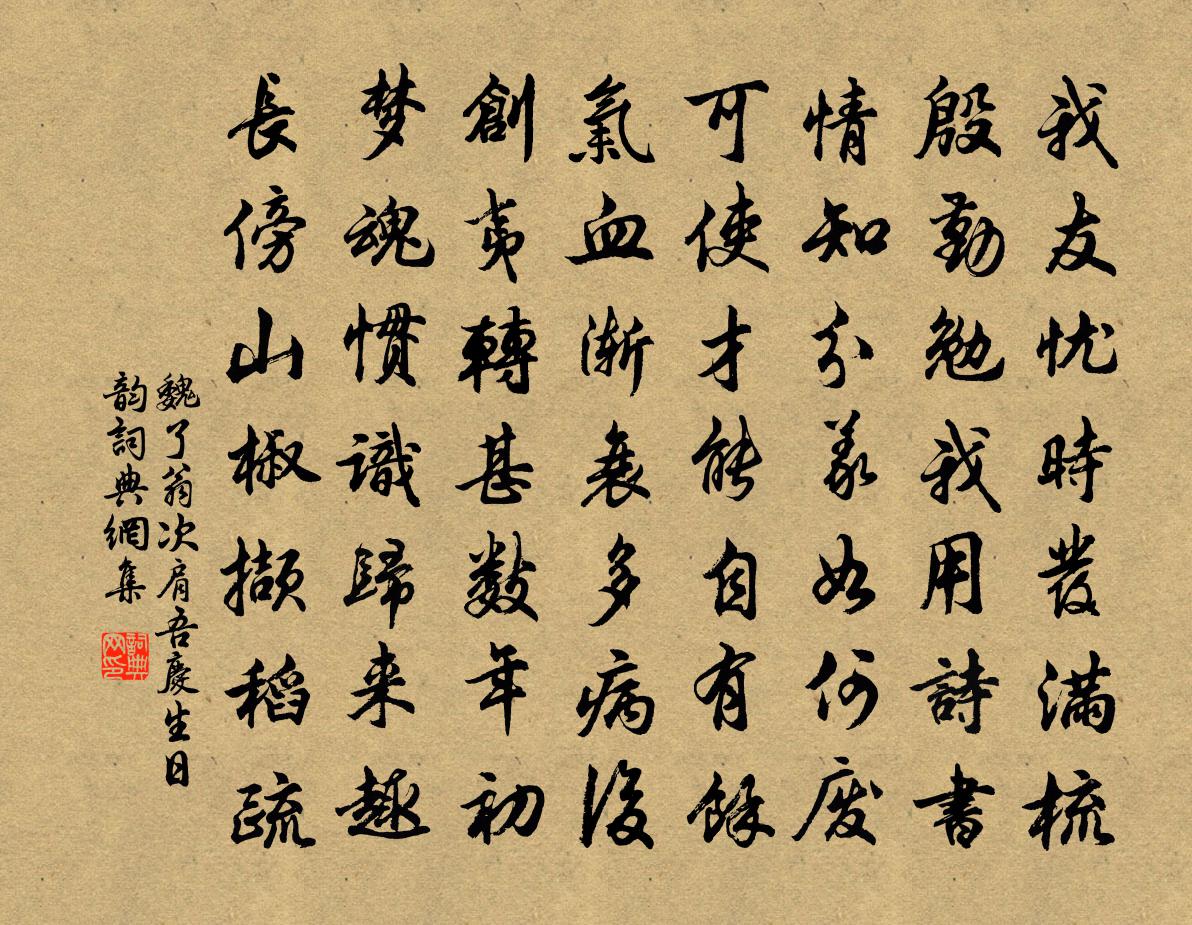 我友忧時發滿梳
殷勤勉我用詩書
情知分義如何废
可使才能自有餘
氣血漸衰多病後
創夷轉甚數年初
梦魂慣識歸来趣
長傍山椒擷稻疏
魏了翁次肩吾慶生日
韵詞典網集
詞典网印